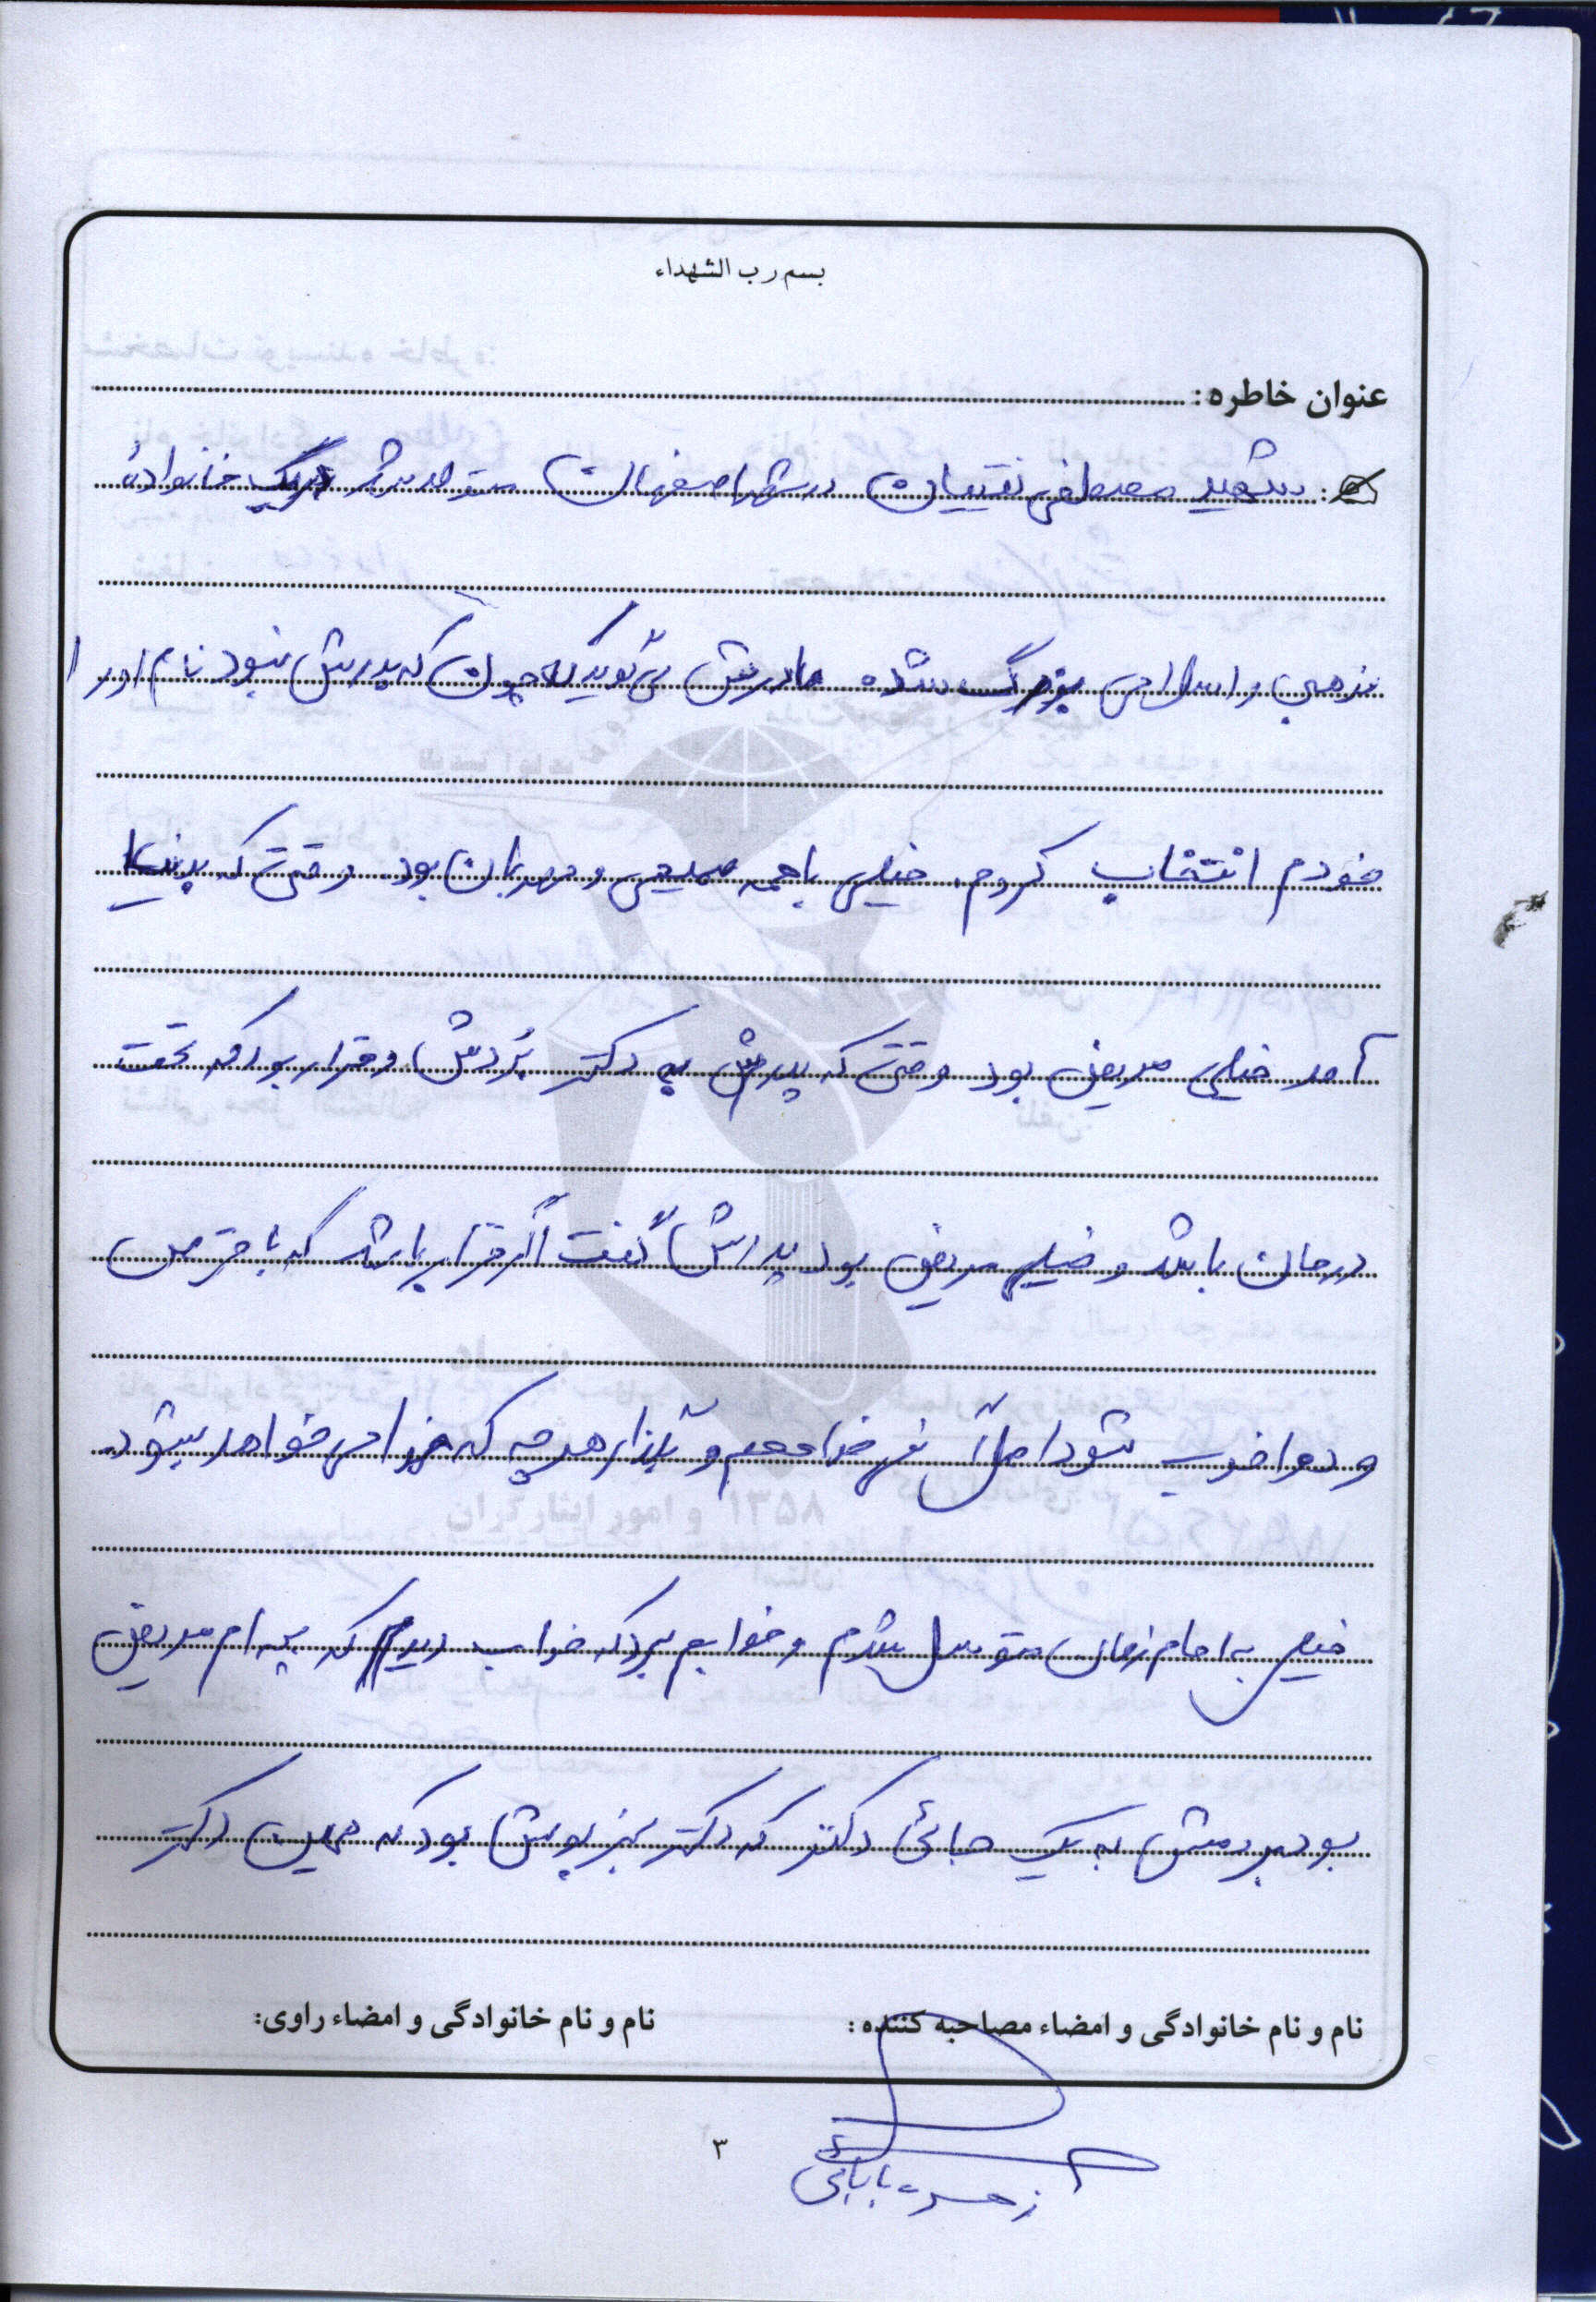 بسم رب الشهداء
عنوان خاطره:
شهید مصطفی نقیبیان در شهر اصفهان متولد شد در یک خانواده
مذهبی و اسلامی بزرگ شده مادرش می گوید که چون که پدرش نبود نام او را
خودم انتخاب کردم. خیلی با همه صمیمی و مهربان بود. وقتی که بدنیا
آمد خیلی مریض بود وقتی که پدرش به دکتر بُردش و قرار بود که تحت
درمان باشد و خیلی مریض بود پدرش گفت اگر قرار باشد که با قرص
و دوا خوب شود اصلاً نمی خواهم و بگذار هر چه که خدا می خواهد بشود.
خیلی به امام زمان متوسل شدم و خوابم برد که خواب دیدم که بچه ام مریض
بود بردمش به یک جائی دکتر که دکتر سبز پوش بود که همین دکتر
نام و نام خانوادگی و امضاء مصاحبه کننده: نام و نام خانوادگی و امضاء راوی:
بابائی
۳